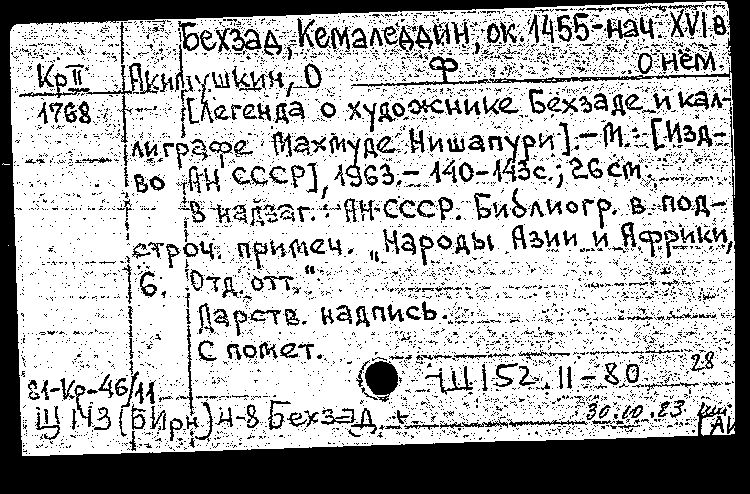 Бехзад, Кемаледдин, ок. 1455-нач. XVI в.
Ф О нем.
Кр II Акимушкин, О
1768 [Легенда о художнике Бехзаде и кал-
лиграфе Махмуде Нишапури].-М.: [Изд-
во АН СССР], 1963.- 140-143с.; 26 см.
В надзаг.: АН СССР. Библиогр. в под-
строч. примеч. "Народы Азии и Африки,
6. Отд. отт."
Дарств. надпись.
С помет.
Щ152.11-80 28
81-Кр-46/11
Щ143(5Ирн)4-8 Бехзад +
30.10.23